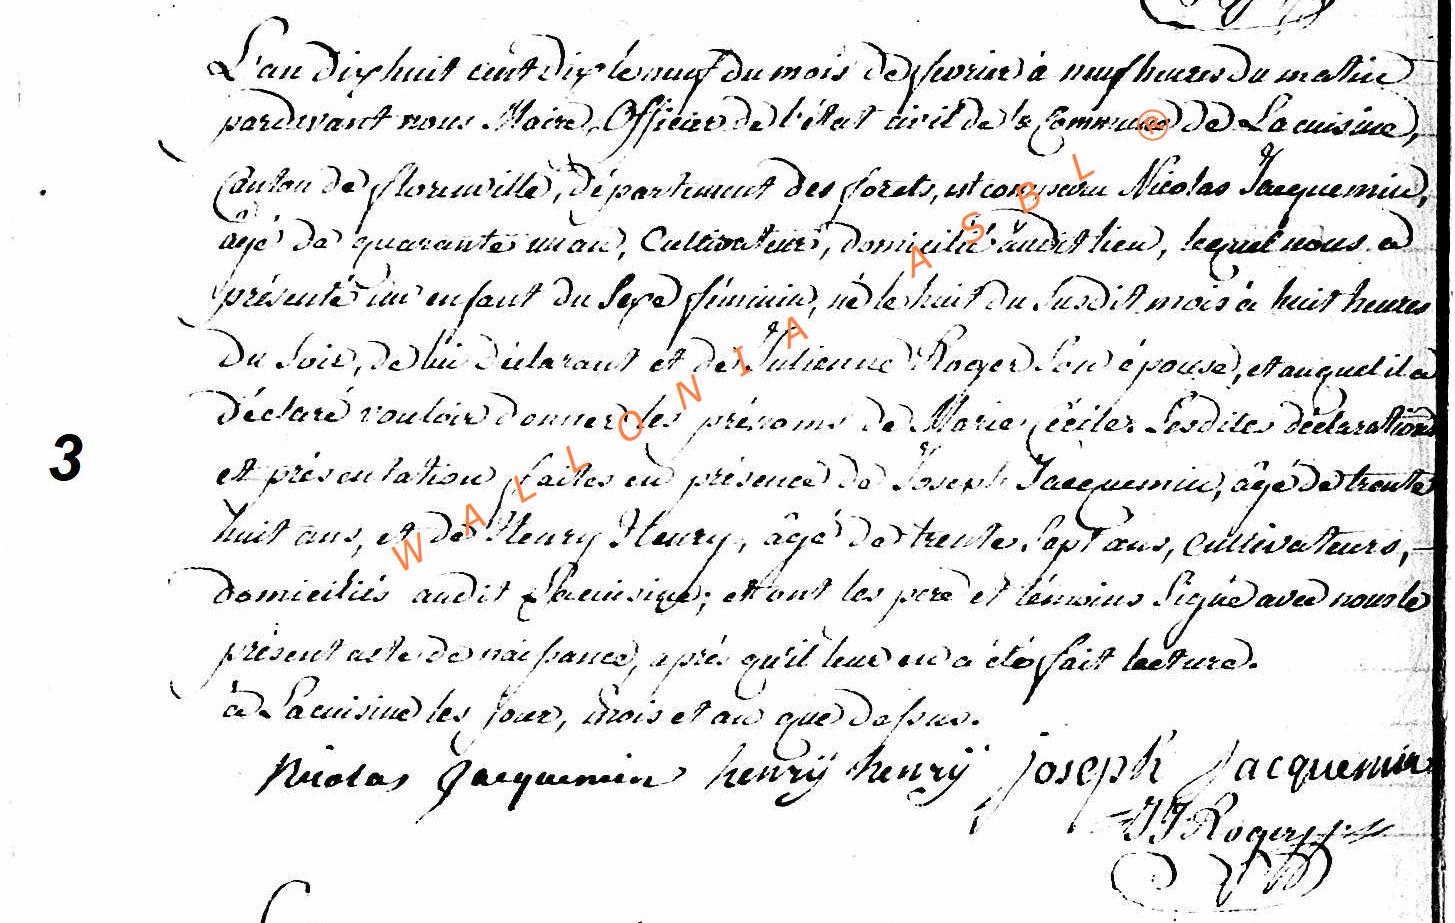 L'an dix huit cent dix le neuf du mois de fevrier à neuf heures du matin
pardevant nous Maire, Officier de l'état civil de la Commune de Lacuisine,
Canton de florenville, département des forets, est comparu Nicolas Jacquemin,
âgé de quarante un an, Cultivateur, domicilié audit lieu, lequel nous a
présenté un enfant du Sexe féminin, né le huit du susdit mois à huit heures
du Soir, de lui déclarant et de Julienne Roger Son épouse, et auquel il a
déclaré vouloir donner les prénoms de Marie Cécile. Lesdites déclarations
3
et présentation faites en présence de Joseph Jacquemin, âgé de trente
huit ans, et de Henry Henry, âgé de trente Sept ans, cultivateurs,
domiciliés audit Lacuisine; et ont les pere et témoins Signé avec nous le
présent acte de naissance, après qu'il leur en a été fait lecture.
à Lacuisine les jour, mois et an que dessus.
Nicolas Jacquemin henrÿ henrÿ joseph Jacquemin
JJ Roger
WALLONIA ASBL ®